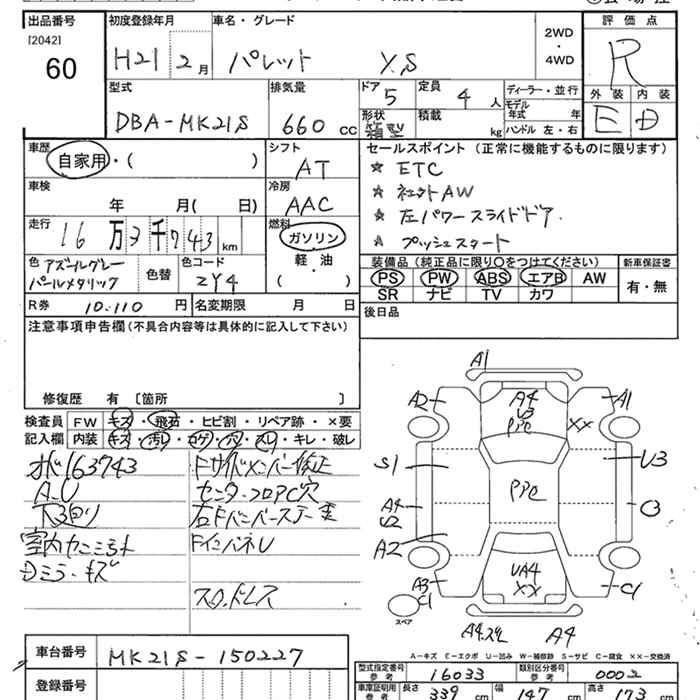 出品番号 初度登録年月 車名・グレード 評価点
[2042]
60
H21 2月 パレット XS
2WD・4WD
R
型式 排気量 ドア 定員 ディーラー・並行 外装 内装
DBA-MK21S 660 CC 5 4人 モデル年式 年 E D
形状 箱型 積載 kg ハンドル 左・右
車歴 シフト セールスポイント (正常に機能するものに限ります)
自家用・( ) AT ★ ETC
車検 冷房 ★ 社外AW
年 月( 日) AAC ★ 左パワースライドドア.
走行 燃料 ★ プッシュスタート
16万3千743km ガソリン
軽・油
( )
装備品 (純正品に限り〇をつけてください) 新車保証書
色 アズールグレーパールメタリック 色替 色コード ZY4
PS PW ABS エアB AW 有・無
SR ナビ TV カワ
R券 10.110 円 名変期限 月 日
後日品
注意事項申告欄(不具合内容等は具体的に記入して下さい)
修復歴 有 〔箇所 〕
検査員 FW キズ・飛石・ヒビ割・リペア跡・×要
記入欄 内装 キズ・汚レ・コゲ・穴・スレ・キレ・破レ
163743 ドサイドメンバー修正
A-U センターフロアC穴
下廻り
室内
Dミラーキズ ドインパネU
A1
A2 A4 A1
U3 XX
PPC
S1 U3
A4 PPC C3
U2
A2
UA4
A3 XX C1
C1
スペア
A4 A4
A-キズ E-エクボ U-凹み W-補修跡 S-サビ C-腐食 XX-交換済
車台番号 MK21S-150227
登録番号
型式指定番号 参考 16033 類別区分番号 参考 0002
車庫証明用 参考 長さ 339 cm 幅 147 cm 高さ 173 cm